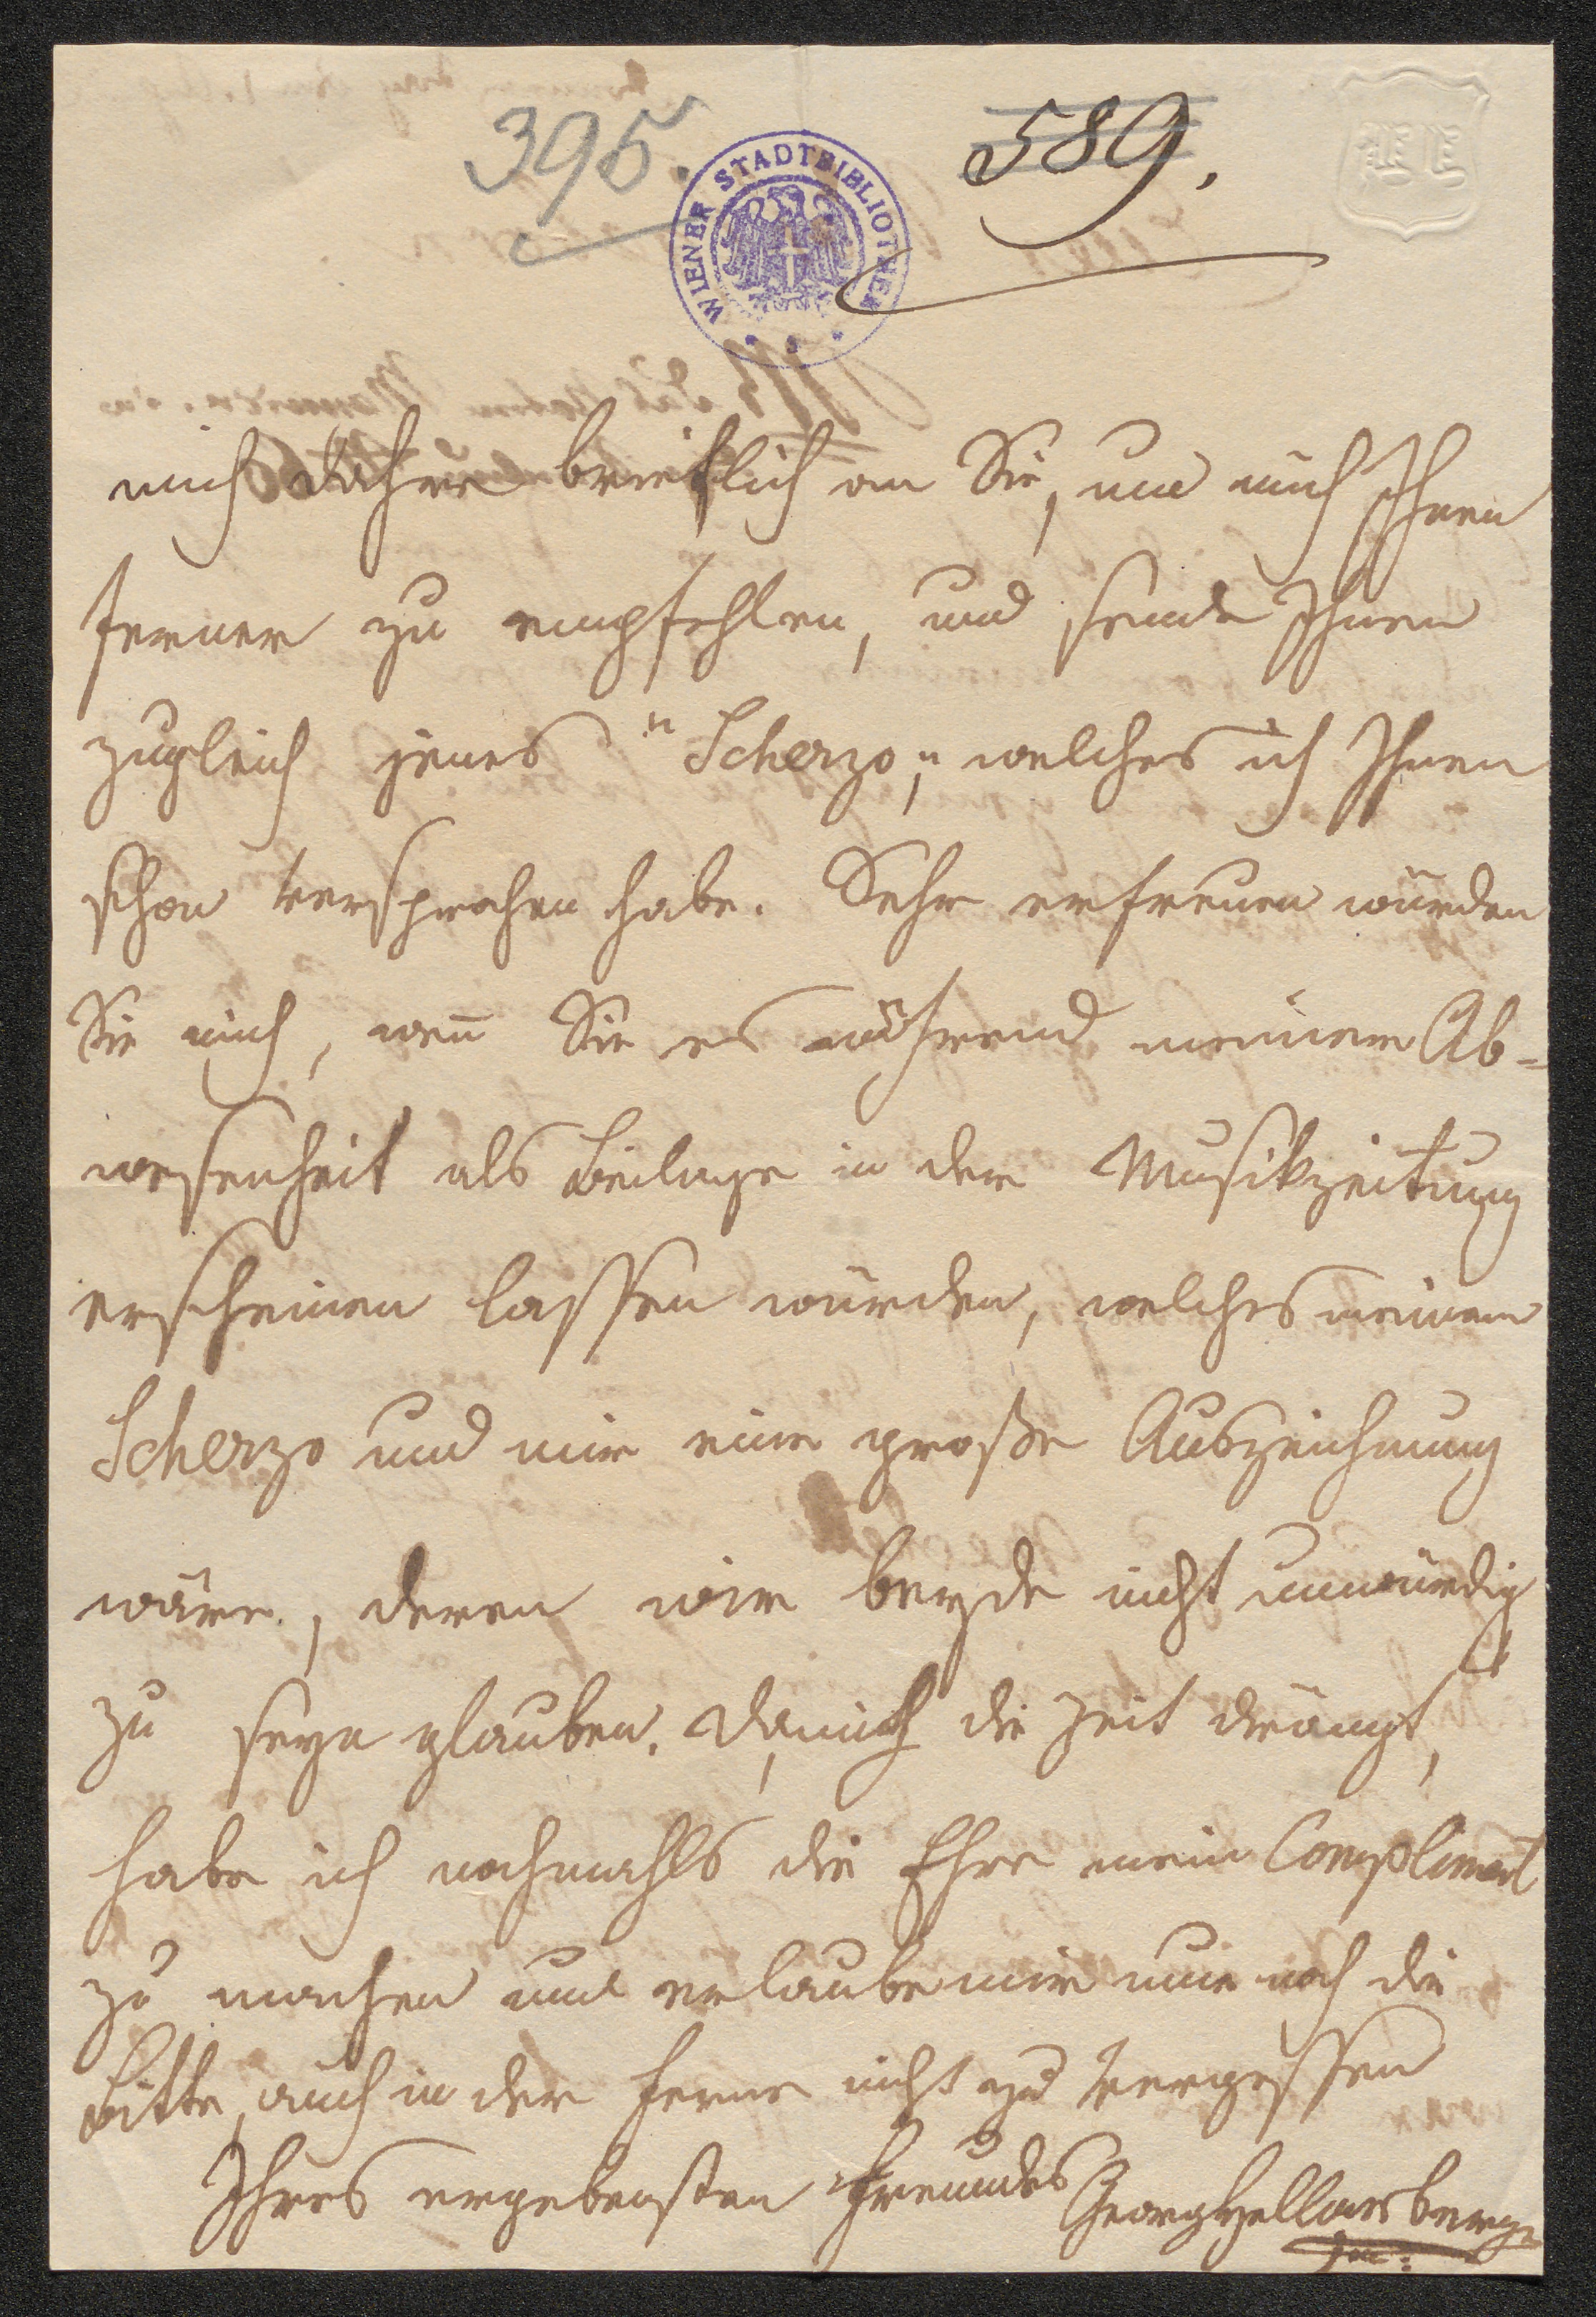 395.
589.
WIENER STADTBIBLIOTHEK
mich daher brieflich an Sie, um mich Ihnen
ferner zu empfehlen, und sende Ihnen
zugleich jenes "Scherzo," welches ich Ihnen
schon versprochen habe. Sehr erfreuen würden
Sie mich, weñ Sie es während meiner Ab=
wesenheit als Beilage in der Musikzeitung
erscheinen lassen würden, welches meinem
Scherzo und mir eine große Auszeichnung
wäre, deren wir beyde nicht unwürdig
zu seyn glauben. Da mich die Zeit drängt,
habe ich nochmahls die Ehre mein Compliment
zu machen und erlaube mir nur noch die
Bitte, auch in der Ferne nicht zu vergessen
Ihres ergebensten Freundes Georg Hellmesberger
Jun: